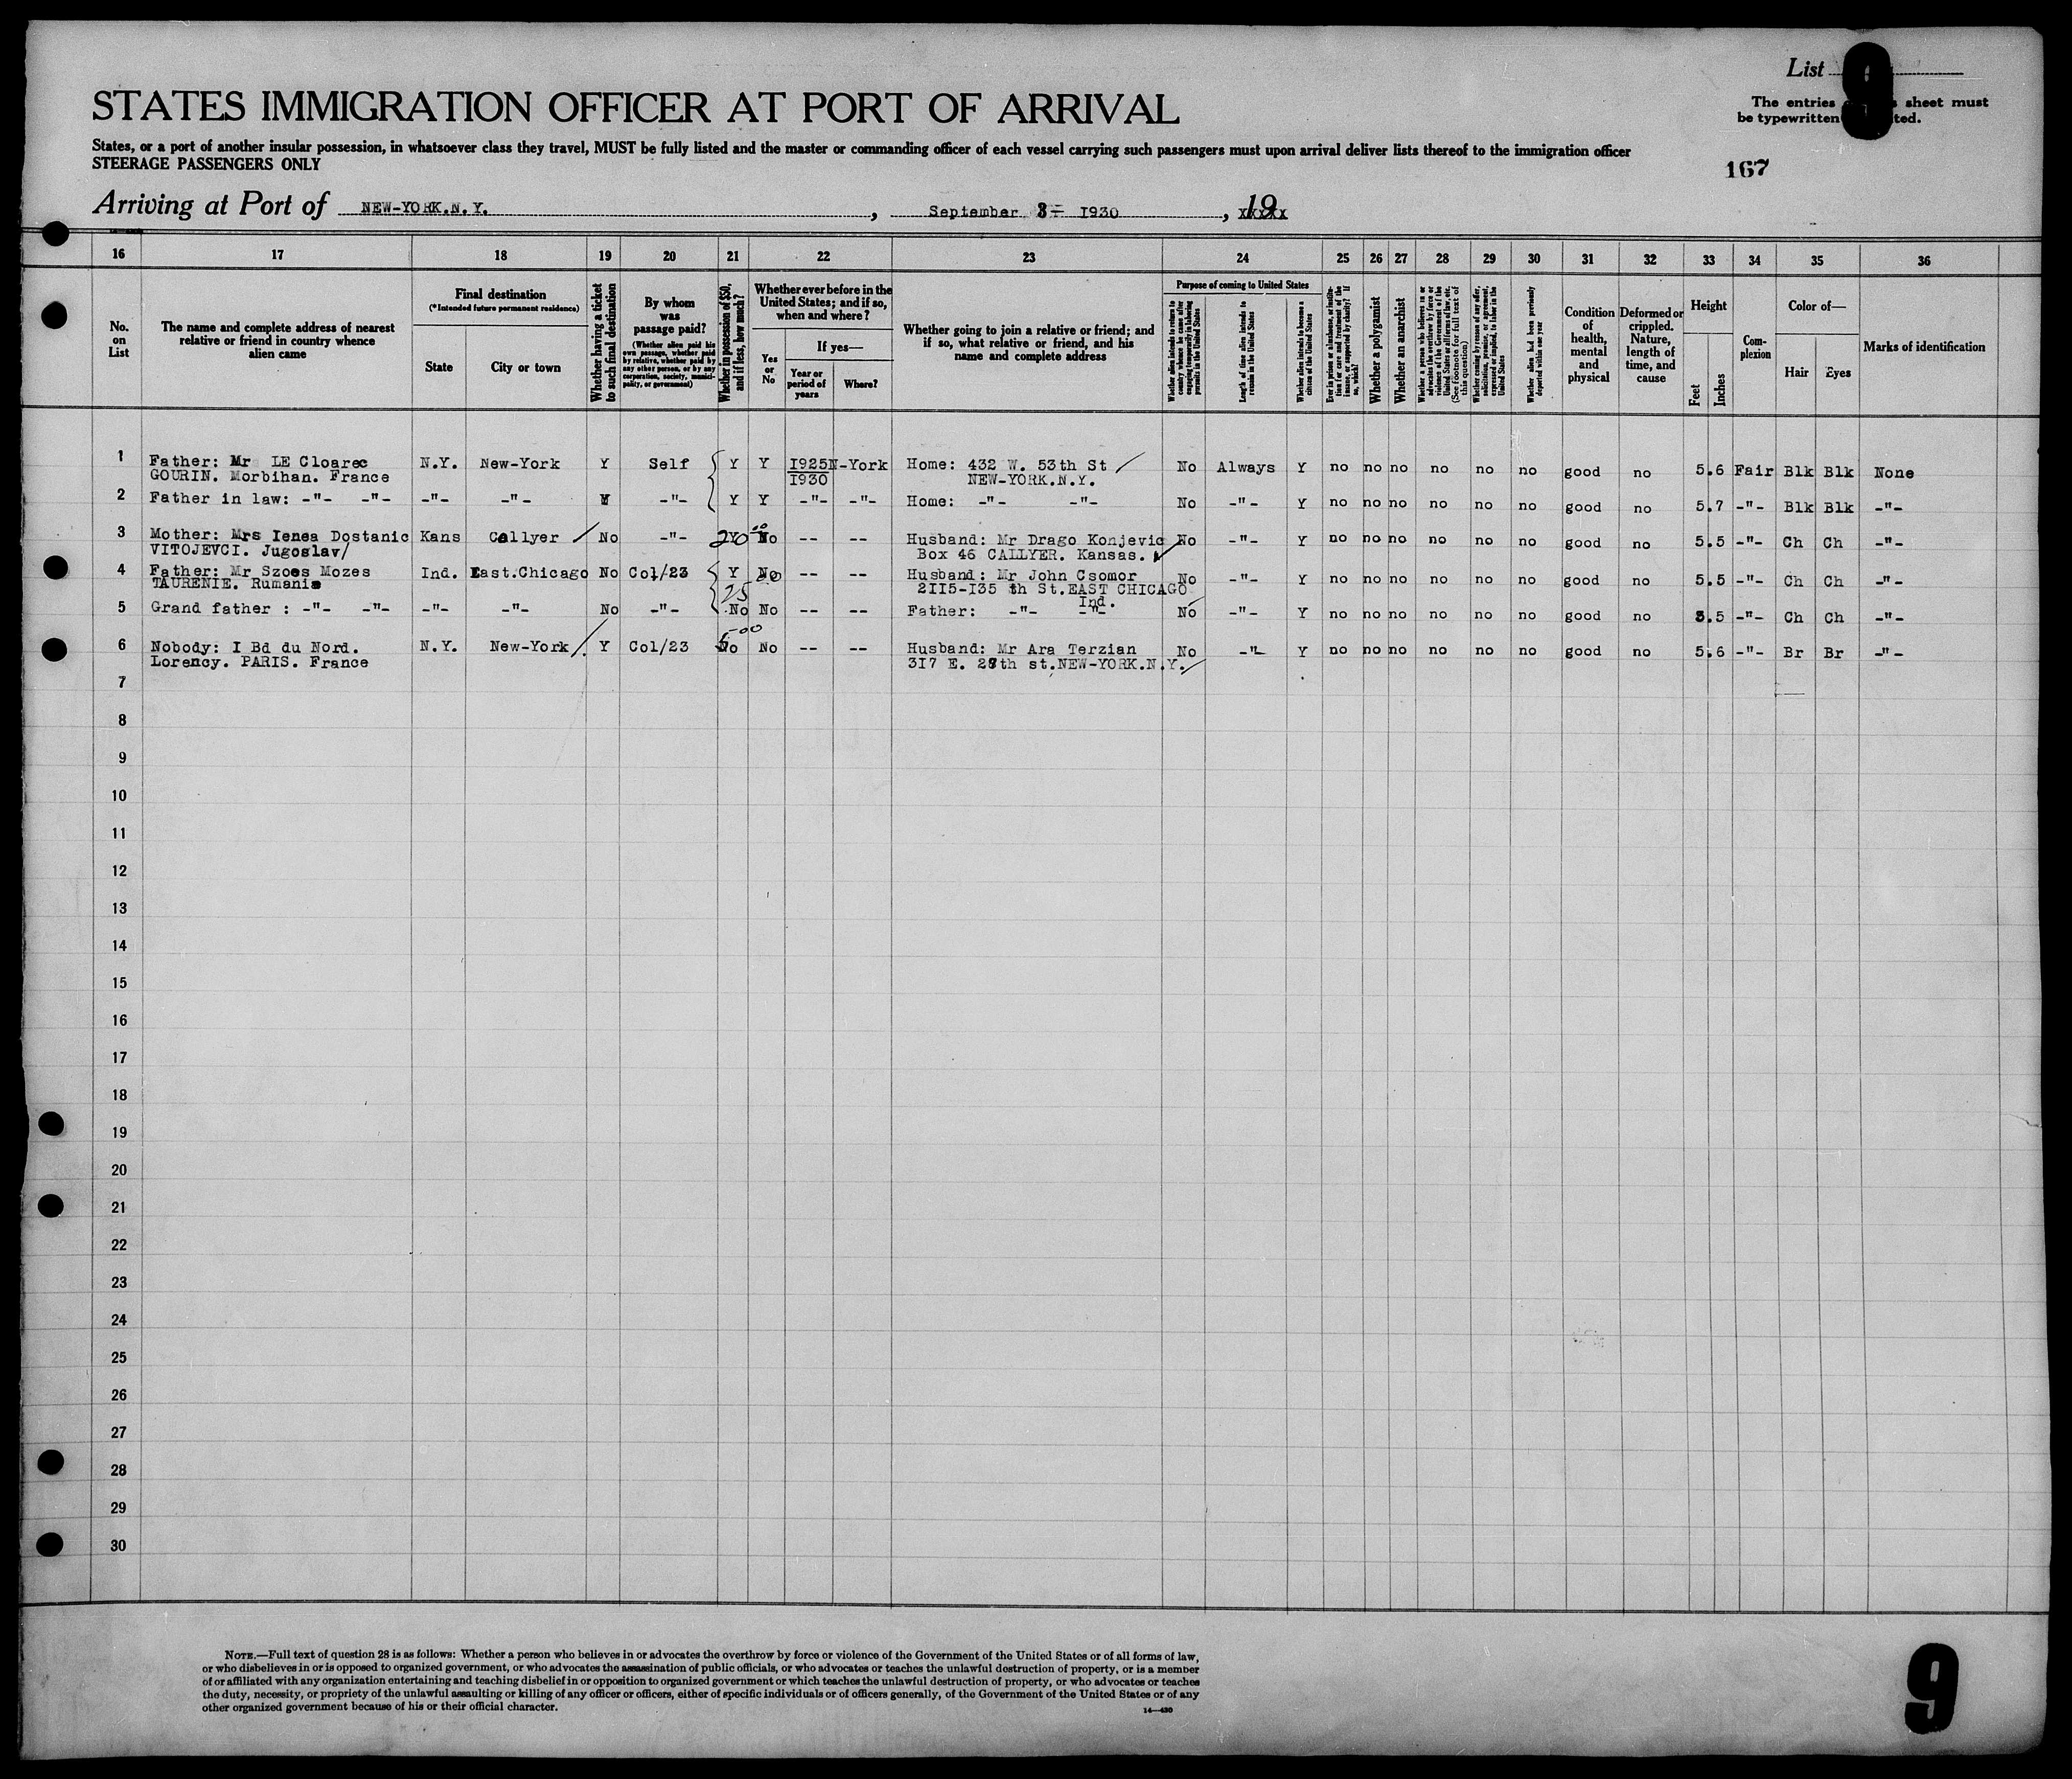 List 9
STATES IMMIGRATION OFFICER AT PORT OF ARRIVAL
The entries sheet must
be typewritten ted.
States, or a port of another insular possession, in whatsoever class they travel, MUST be fully listed and the master or commanding officer of each vessel carrying such passengers must upon arrival deliver lists thereof to the immigration officer
STEERAGE PASSENGERS ONLY
167
Arriving at Port of NEW-YORK.N.Y. , September 3- I930 , 19
16 17 18 19 20 21 22 23 24 25 26 27 28 29 30 31 32 33 34 35 36
No. on List
The name and complete address of nearest relative or friend in country whence alien came
Final destination
(*Intended future permanent residence)
State
City or town
Whether having a ticket to such final destination
By whom was passage paid?
(Whether alien paid his own passage, whether paid by relative, whether paid by any other person, or by any corporation, society, municipality, or government)
Whether in possession of $50, and if less, how much?
Whether ever before in the United States; and if so, when and where?
Yes or No
If yes—
Year or period of years
Where?
Whether going to join a relative or friend; and if so, what relative or friend, and his name and complete address
Purpose of coming to United States
Whether alien intends to return to country whence he came after engaging temporarily in laboring pursuits in the United States
Length of time alien intends to remain in the United States
Whether alien intends to become a citizen of the United States
Ever in prison or almshouse, or institution for care and treatment of the insane, or supported by charity? If so, which?
Whether a polygamist
Whether an anarchist
Whether a person who believes in or advocates the overthrow by force or violence of the Government of the United States or all forms of law, etc. (See footnote for full text of this question)
Whether coming by reason of any offer, solicitation, promise, or agreement, expressed or implied, to labor in the United States
Whether alien had been previously deported within one year
Condition of health, mental and physical
Deformed or crippled. Nature, length of time, and cause
Height
Feet
Inches
Com-plexion
Color of—
Hair
Eyes
Marks of identification
1 Father: Mr LE Cloarec N.Y. New-York Y Self Y Y I925 N-York Home: 432 W. 53th St No Always Y no no no no no no good no 5.6 Fair Blk Blk None
GOURIN. Morbihan. France I930 NEW-YORK.N.Y.
2 Father in law: -"- -"- -"- -"- Y -"- Y Y -"- -"- Home: -"- -"- No -"- Y no no no no no no good no 5.7 -"- Blk Blk -"-
3 Mother: Mrs Ienea Dostanic Kans Callyer No -"- 20 00 No -- -- Husband: Mr Drago Konjevic No -"- Y no no no no no no good no 5.5 -"- Ch Ch -"-
VITOJEVCI. Jugoslav/ Box 46 CALLYER. Kansas.
4 Father: Mr Szoes Mozes Ind. East.Chicago No Col/23 Y No -- -- Husband: Mr John Csomor No -"- Y no no no no no no good no 5.5 -"- Ch Ch -"-
TAURENIE. Rumania 25 00 2II5-I35 th St.EAST CHICAGO
Ind.
5 Grand father : -"- -"- -"- -"- No -"- No No -- -- Father: -"- -"- No -"- Y no no no no no no good no 3.5 -"- Ch Ch -"-
6 Nobody: I Bd du Nord. N.Y. New-York Y Col/23 No No -- -- Husband: Mr Ara Terzian No -"- Y no no no no no no good no 5.6 -"- Br Br -"-
Lorency. PARIS. France 3I7 E. 28th st.NEW-YORK.N.Y.
7
8
9
10
11
12
13
14
15
16
17
18
19
20
21
22
23
24
25
26
27
28
29
30
NOTE.—Full text of question 28 is as follows: Whether a person who believes in or advocates the overthrow by force or violence of the Government of the United States or of all forms of law,
or who disbelieves in or is opposed to organized government, or who advocates the assassination of public officials, or who advocates or teaches the unlawful destruction of property, or is a member
of or affiliated with any organization entertaining and teaching disbelief in or opposition to organized government or which teaches the unlawful destruction of property, or who advocates or teaches
the duty, necessity, or propriety of the unlawful assaulting or killing of any officer or officers, either of specific individuals or of officers generally, of the Government of the United States or of any
other organized government because of his or their official character.
14—430
9